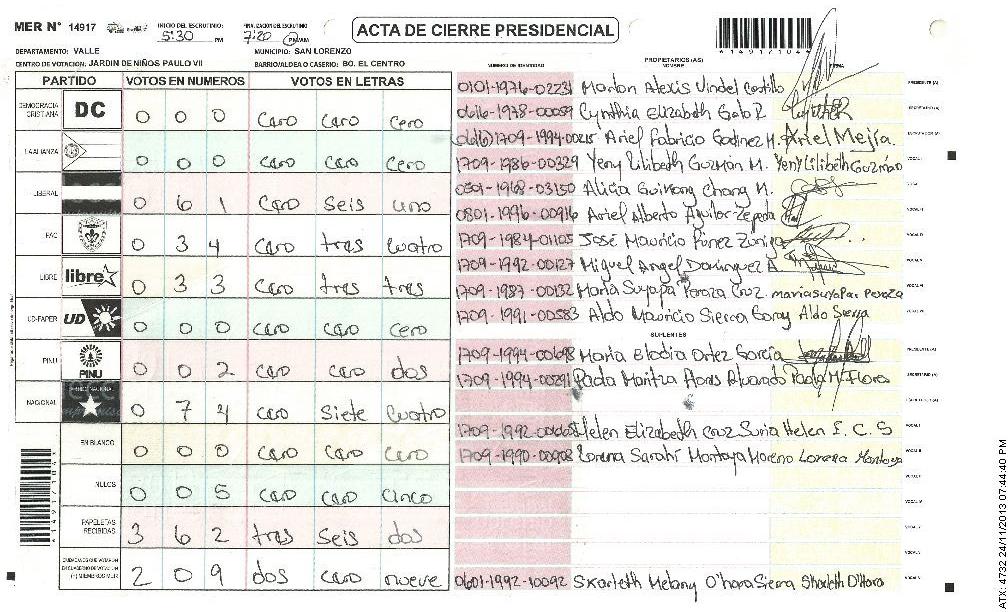 MER N° 14917 INICIO DEL ESCRUTINIO: 5:30 PM FINALIZACION DEL ESCRUTINIO: 7:20 PM/AM
ACTA DE CIERRE PRESIDENCIAL
DEPARTAMENTO: VALLE MUNICIPIO: SAN LORENZO
CENTRO DE VOTACION: JARDIN DE NIÑOS PAULO VII BARRIO/ALDEA O CASERIO: BO. EL CENTRO
PARTIDO VOTOS EN NUMEROS VOTOS EN LETRAS
DEMOCRACIA CRISTIANA DC 0 0 0 cero cero cero
LA ALIANZA 0 0 0 cero cero cero
LIBERAL 0 6 1 cero seis uno
FAC 0 3 4 cero tres cuatro
LIBRE libre 0 3 3 cero tres tres
UD-FAPER UD 0 0 0 cero cero cero
PINU PINU 0 0 2 cero cero dos
NACIONAL 0 7 4 cero siete cuatro
EN BLANCO 0 0 0 cero cero cero
NULOS 0 0 5 cero cero cinco
PAPELETAS RECIBIDAS 3 6 2 tres seis dos
2 0 9 dos cero nueve
NUMERO DE IDENTIDAD PROPIETARIOS (AS) NOMBRE FIRMA
0101-1976-02231 Marlon Alexis Vindel Castillo PRESIDENTE (A)
0616-1978-00059 Cynthia Elizabeth Galo R SECRETARIO (A)
1709-1994-00215 Ariel Fabricio Godinez M. Ariel Mejia. ESCRUTADOR (A)
1709-1986-00329 Yeny Lilibeth Guzmán M. Yeny Lilibeth Guzmán VOCAL I
0501-1968-03150 Alicia Guimong Chang M.
0801-1996-00916 Ariel Alberto Aguilar Zepeda
1709-1984-01105 José Mauricio Funez Zuniga
1709-1992-00127 Miguel Angel Dominguez A.
1709-1987-00132 Maria Suyapa Peraza Cruz. maria suyapa. Peraza
1709-1991-00583 Aldo Mauricio Sierra Garay Aldo Sierra
SUPLENTES
1709-1994-00698 Maria Elodia Ortez Garcia PRESIDENTE (A)
1709-1994-00291 Paola Maritza Flores Alvarado Paola M. Flores SECRETARIO (A)
ESCRUTADOR (A)
Helen Elizabeth Cruz Suria Helen E. C. S VOCAL I
1709-1990-00908 Lorena Sarahi Montoya Moreno Lorena Montoya VOCAL II
0601-1992-10092 Skarleth Melany O'hara Sierra Skarleth O'Hara
A14917104
ATX 4732 24/11/2013 07:44:40 PM